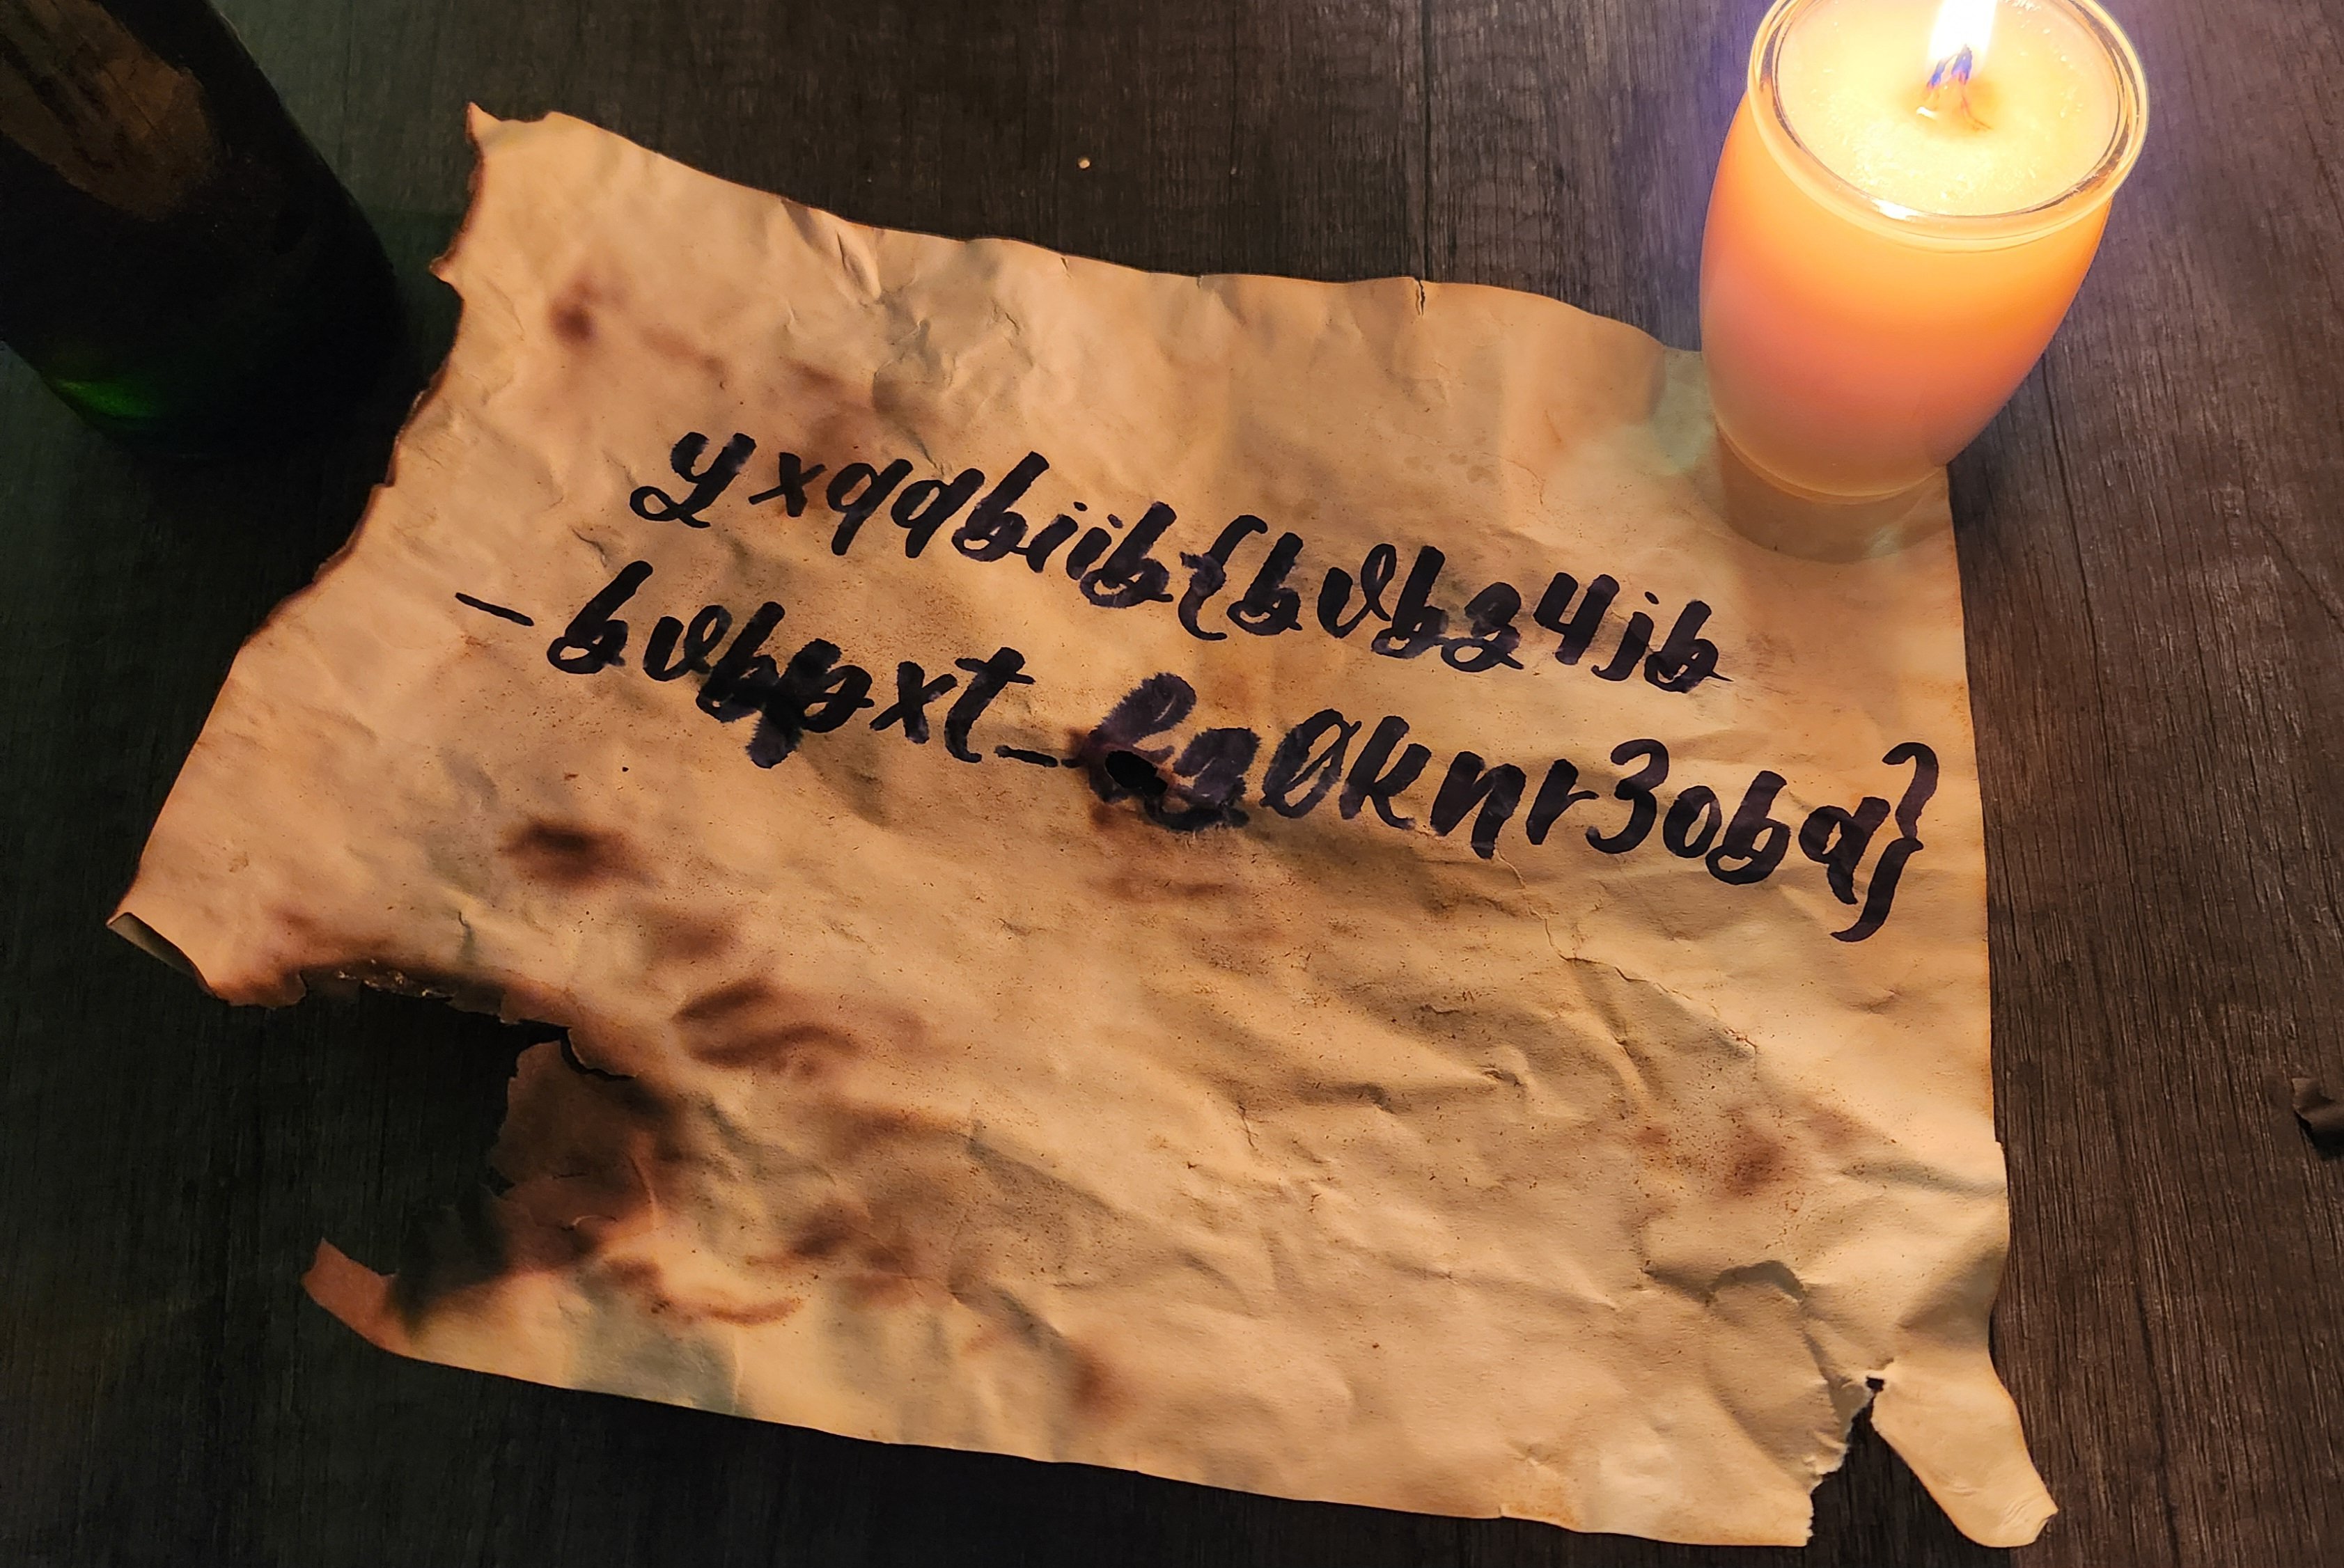 yxqqbiib{bvbz4jb
-bvbpxt_fz0knr3oba}